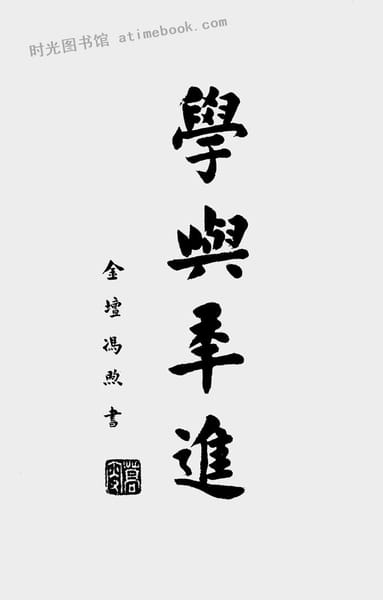 时光图书馆 atimebook.com
學與年進
金壇馮煦書
蒿叟